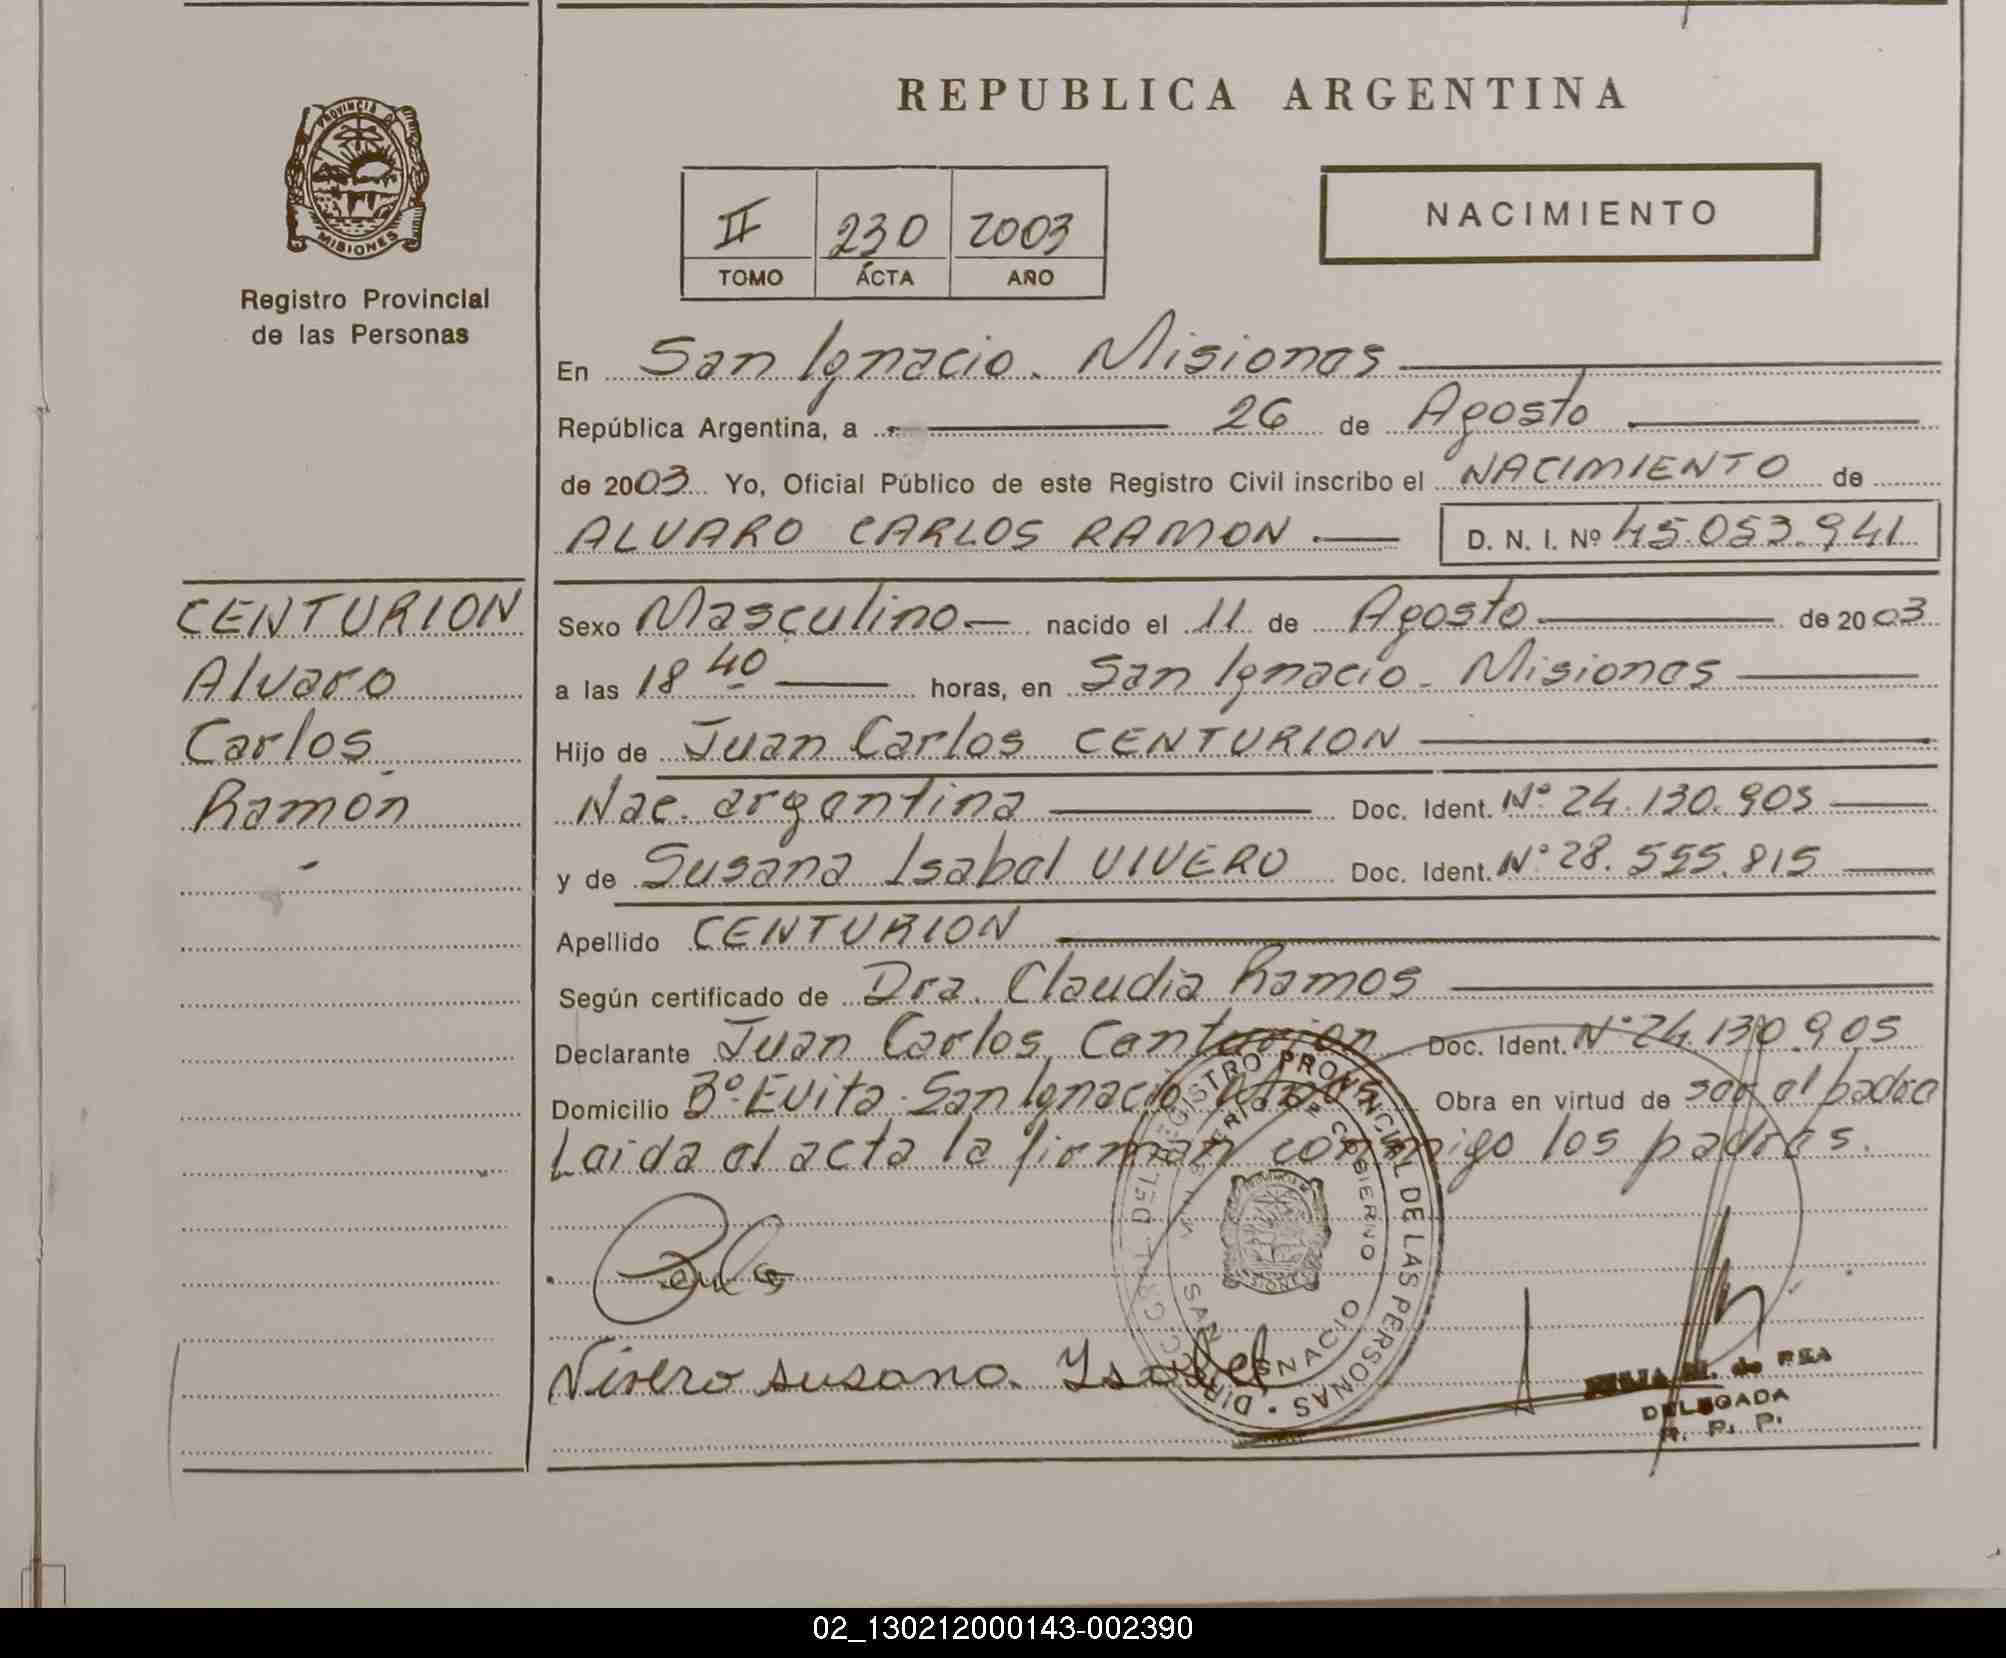 REPUBLICA ARGENTINA
PROVINCIA D
MISIONES
Registro Provincial
de las Personas
II 230 2003
TOMO ACTA AÑO
NACIMIENTO
En San Ignacio. Misiones
República Argentina, a 26 de Agosto
de 2003 Yo, Oficial Público de este Registro Civil inscribo el NACIMIENTO de
ALVARO CARLOS RAMON D. N. I. Nº 45.053.941
CENTURION
Alvaro
Carlos
Ramón
Sexo Masculino nacido el 11 de Agosto de 2003
a las 18 40 horas, en San Ignacio - Misiones
Hijo de Juan Carlos CENTURION
Nac. argentina Doc. Ident. Nº 24.130.905
y de Susana Isabel VIVERO Doc. Ident. Nº 28.555.815
Apellido CENTURION
Según certificado de Dra. Claudia Ramos
Declarante Juan Carlos Centurion Doc. Ident. Nº 24.130.905
Domicilio Bº Evita - San Ignacio Obra en virtud de ser el padre
Leida el acta la firman conmigo los padres.
Vivero Susana Ysabel
REGISTRO PROVINCIAL DE LAS PERSONAS
DE GOBIERNO
SAN IGNACIO
M. de REA
DELEGADA
R. P. P.
02_130212000143-002390